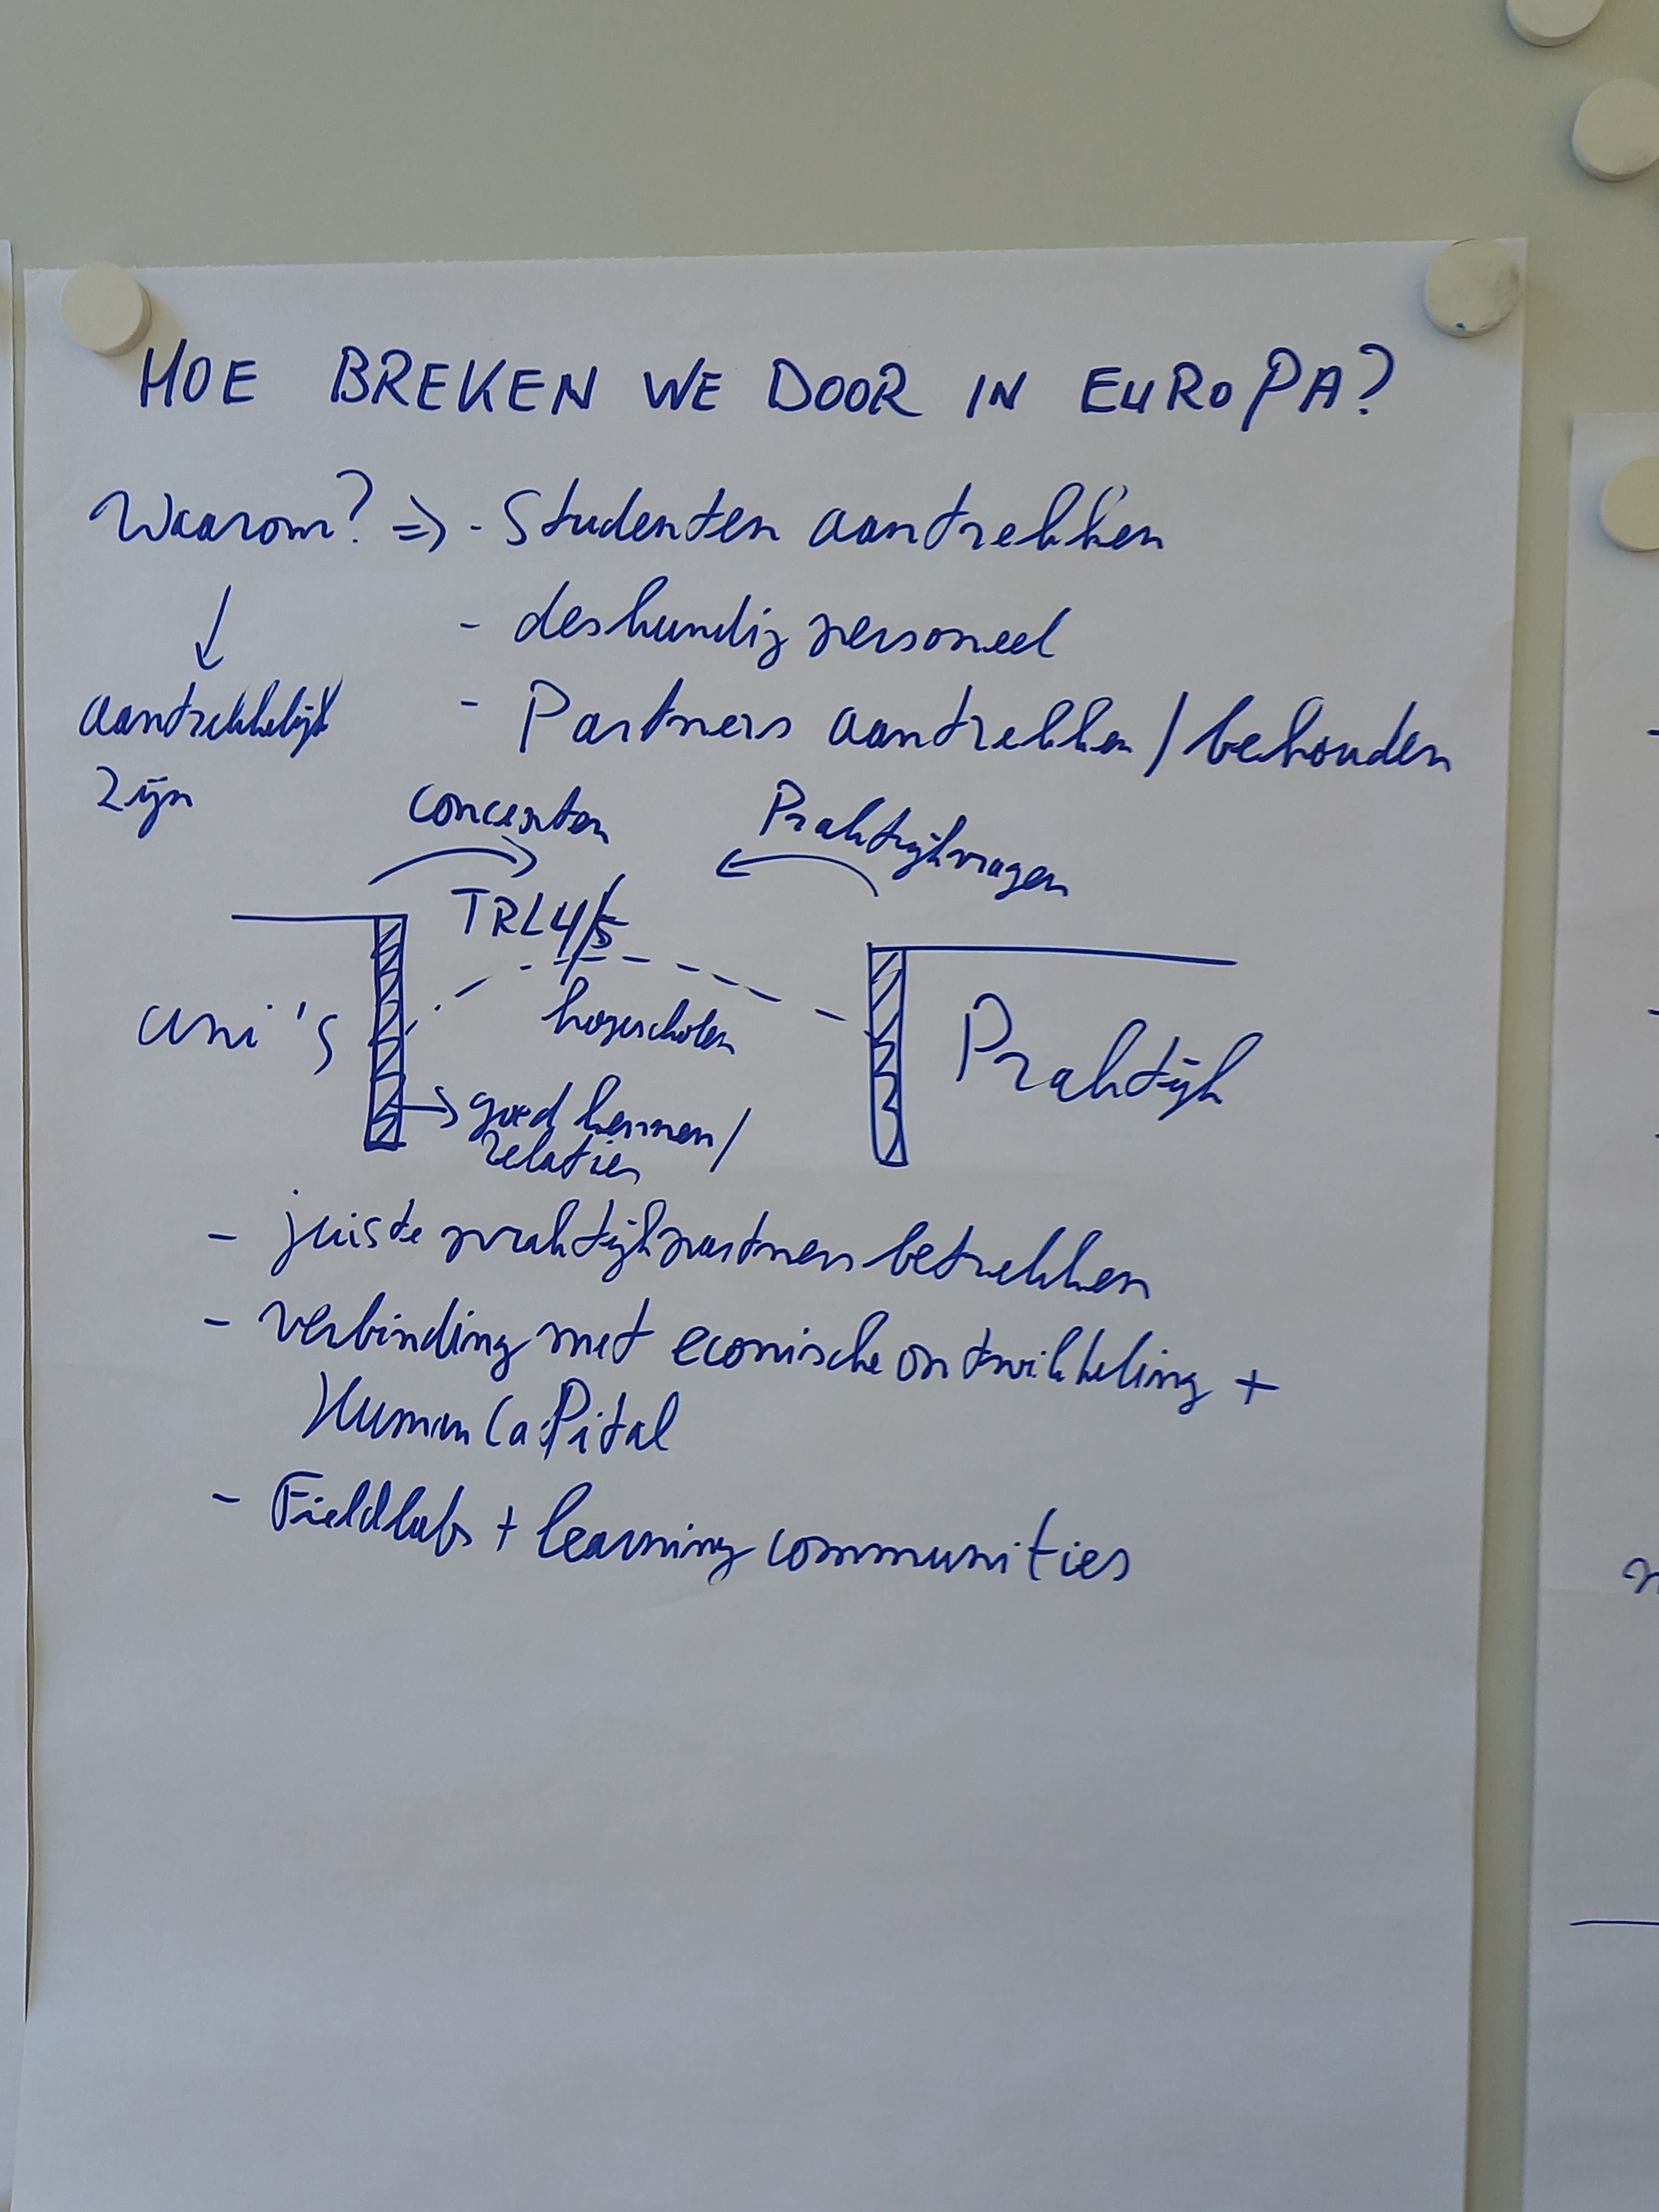 HOE BREKEN WE DOOR IN EUROPA?
Waarom? => - Studenten aantrekken
- deskundig personeel
aantrekkelijk
- Partners aantrekken / behouden
zijn
concepten
Praktijkvragen
TRL 4/5
uni's
hogescholen
Praktijk
goed kennen /
relaties
- juiste praktijkpartners betrekken
- verbinding met econische ontwikkeling +
Human CaPital
- Fieldlabs + learning communities